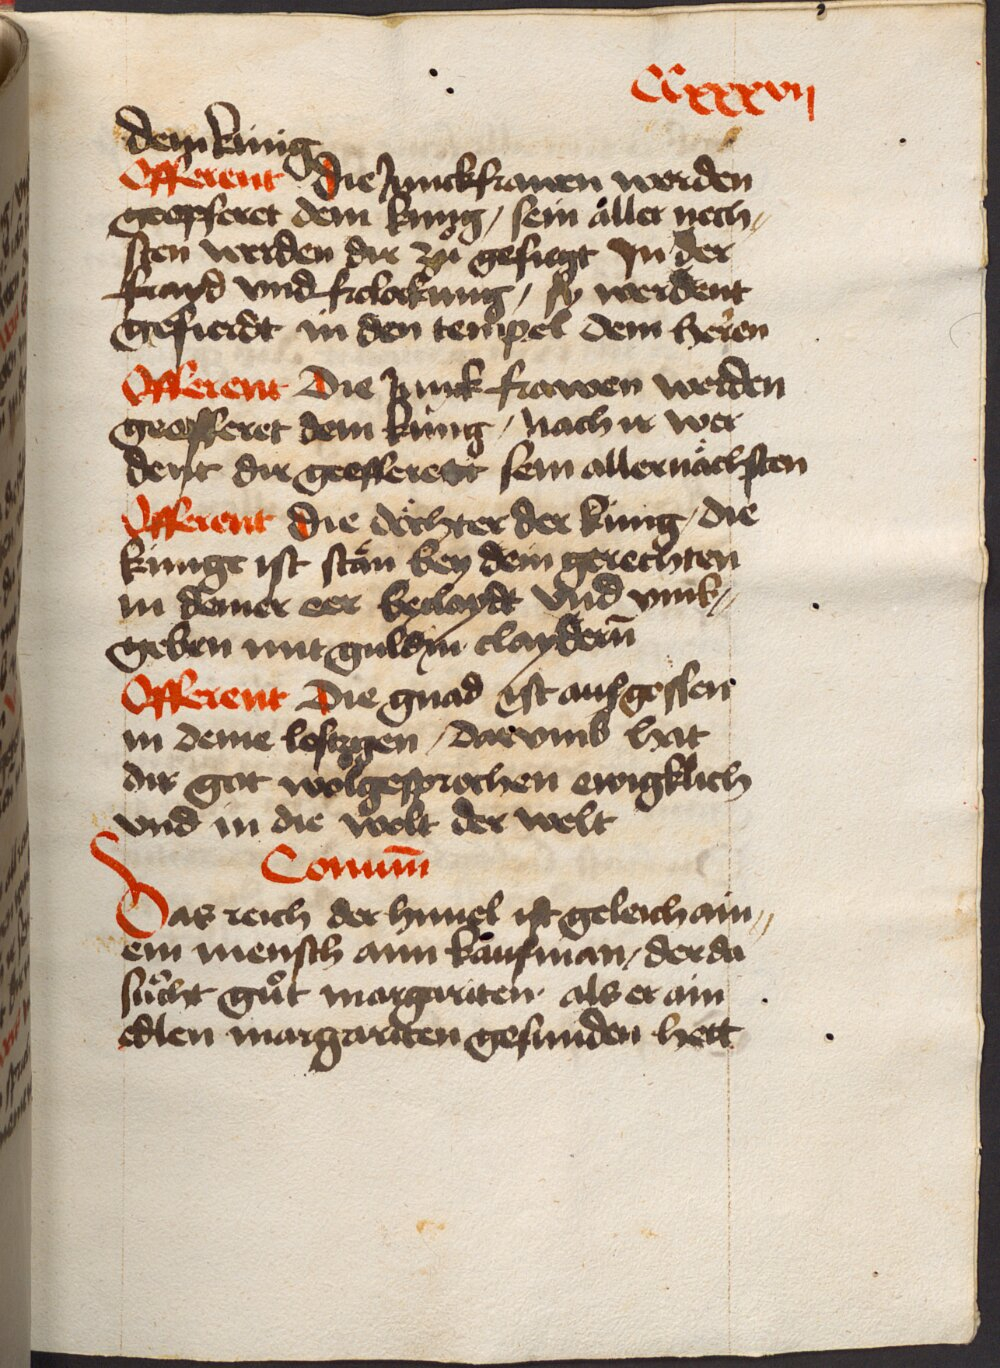 CCxxxvij
dem kunig
Offerent Die Junckfrawen werden
geopferet dem kung / sein aller nech〃
sten werden dir zů gefiegt Jn der
frayd vnd frolockung / sy werdent
gefierdt in den tempel dem heren
Offerent Die Junk frawen werden
geofferet dem kung / nach ir wer
dent dir geofferett sein allernächsten
Offerent Die döchter der kung / die
kunge ist stän bey dein gerechten
in deiner eer beclaydt vnd vmb〃
geben mit guldin claydern̄
Offerent Die gnad ist auſgossen
in deine lefczgen / darvmb hat
dir got wolgesprochen ewigklich
vnd in die welt der welt
Comum̄
Das reich der himel ist geleich ain〃
em mensch aim kaufman / der da
sůcht gůt margariten als er ain
edlen margariten gefunden hett